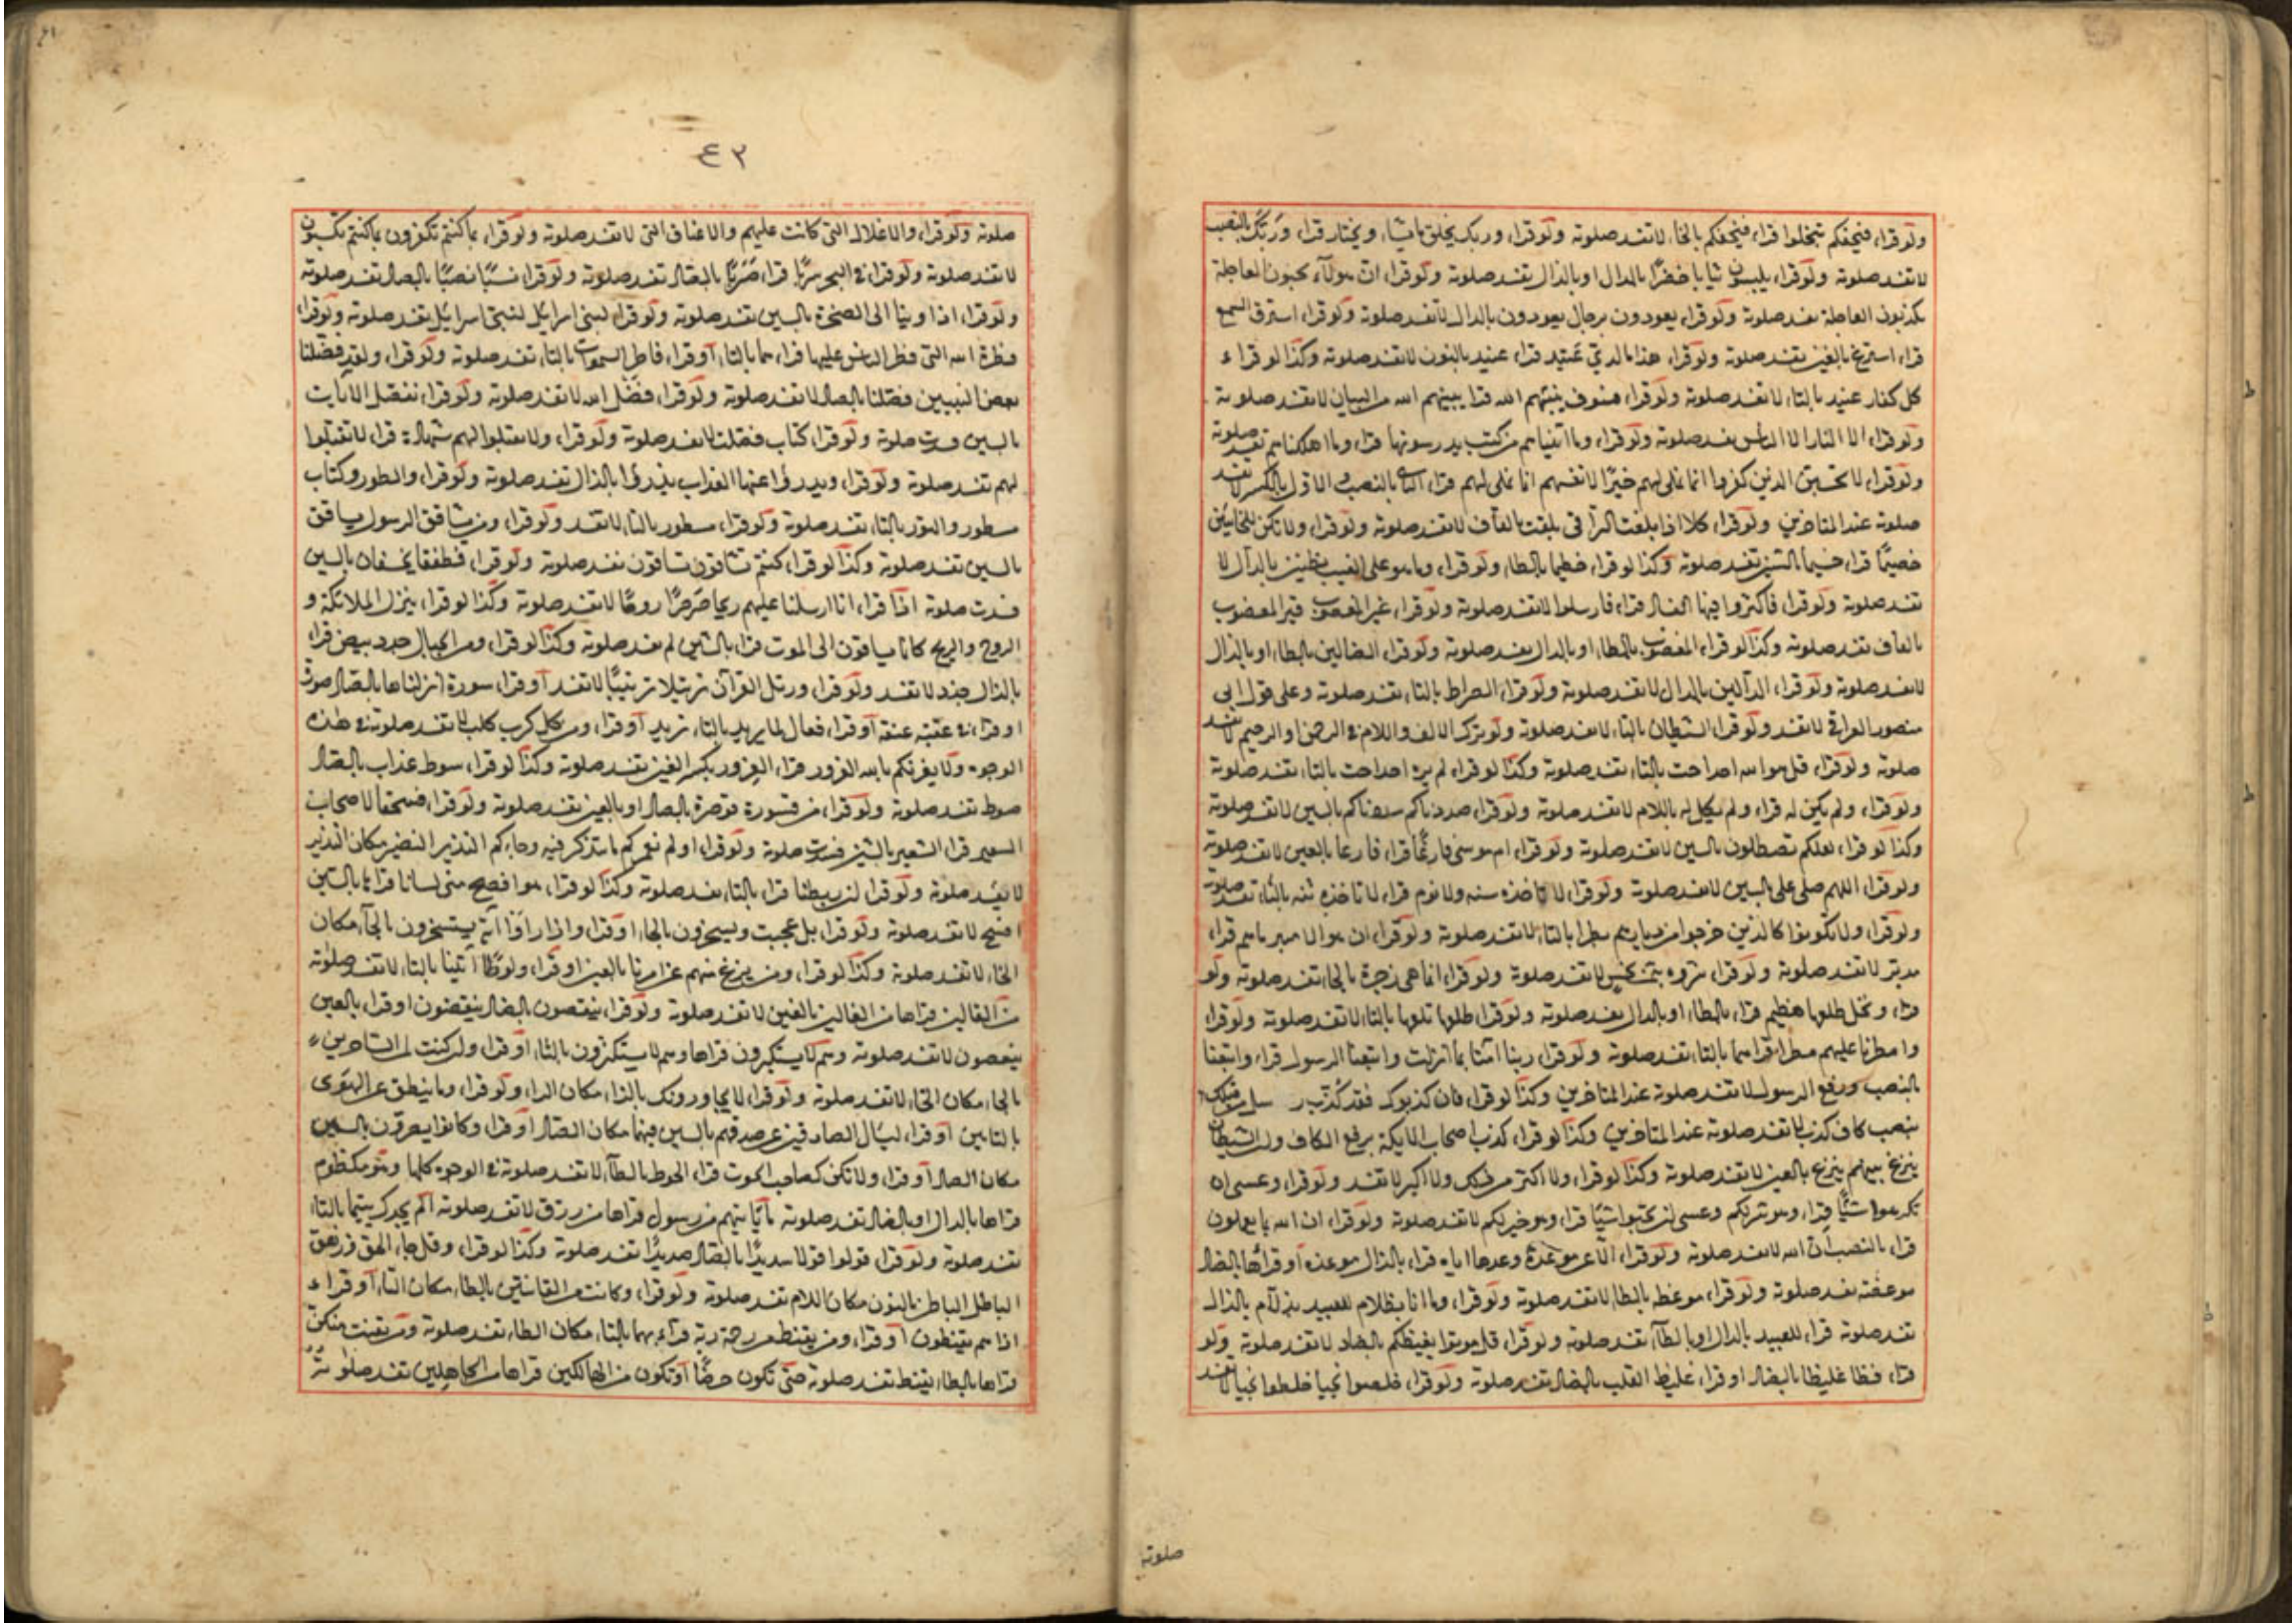 ولو قراء فيحفكم تبخلوا قراء فيخفكم بالخاء لا تفسد صلوته ولو قراء وربك يخلق ما يشاء ويختار قراء وربك بالنصب
لا تفسد صلوته ولو قراء يلبسون ثيابا خضرا بالدال او بالذال تفسد صلوته ولو قراء ان هولاء يحبون العاجلة
يكذبون العاجلة تفسد صلوته ولو قراء يعوذون برجال يعودون بالدال لا تفسد صلوته ولو قراء استرق السمع
قراء استرغ بالغين تفسد صلوته ولو قراء هذا ما لدي عتيد قراء عنيد بالنون لا تفسد صلوته وكذا لو قراء
كل كفار عنيد بالتاء لا تفسد صلوته ولو قراء فسوف ينبئهم الله قراء يبينهم الله من البيان لا تفسد صلوته
ولو قراء الا النار الا الناس تفسد صلوته ولو قراء وما اتيناهم من كتب يدرسونها قراء وما اهلكناهم تفسد صلوته
ولو قراء لا تحسبن الذين كفروا انما نملي لهم خيرا لانفسهم انما نملي لهم قراء الثاني بالنصب والاول بالكسر لا تفسد
صلوته عند المتاخرين ولو قراء كلا اذا بلغت التراقي بلقت بالقاف لا تفسد صلوته ولو قراء ولا تكن للخائنين
خصيما قراء خسيما بالسين تفسد صلوته وكذا لو قراء خطيما بالطاء ولو قراء وما هو على الغيب بظنين بالدال لا
تفسد صلوته ولو قراء فاكثروا فيها الفساد قراء فارسلوا لا تفسد صلوته ولو قراء غير المغضوب قير المغضوب
بالقاف تفسد صلوته وكذا لو قراء المغضوب بالظاء او بالدال تفسد صلوته ولو قراء الضالين بالظاء او بالذال
لا تفسد صلوته ولو قراء الدالين بالدال لا تفسد صلوته ولو قراء الصراط بالتاء تفسد صلوته وعلى قول ابي
منصور العراقي لا تفسد ولو قراء الشيطان بالتاء لا تفسد صلوته ولو ترك الالف واللام في الرحمن او الرحيم لا تفسد
صلوته ولو قراء قل هو الله احد احت بالتاء تفسد صلوته وكذا لو قراء لم يره احد احت بالتاء تفسد صلوته
ولو قراء ولم يكن له قراء ولم يكل له باللام لا تفسد صلوته ولو قراء صددناكم سددناكم بالسين لا تفسد صلوته
وكذا لو قراء لعلكم تصطلون بالسين لا تفسد صلوته ولو قراء ام موسى فارغا قراء فارعا بالعين لا تفسد صلوته
ولو قراء اللهم صلى على بالسين لا تفسد صلوته ولو قراء لا تاخذه سنه ولا نوم قراء لا تاخذه ثنه بالثاء تفسد صلوته
ولو قراء ولا تكونوا كالذين خرجوا من ديارهم بطرا بالتاء لا تفسد صلوته ولو قراء ان هو الا
مدبر لا تفسد صلوته ولو قراء شروه بثمن بخس لا تفسد صلوته ولو قراء انما هي زجرة بالحاء تفسد صلوته ولو
قراء ونخل طلعها هضيم قراء بالظاء او بالدال تفسد صلوته ولو قراء طلعها تلعها بالتاء لا تفسد صلوته ولو قراء
وامطرنا عليهم مطرا قراءهما بالتاء تفسد صلوته ولو قراء ربنا امنا بما انزلت واتبعنا الرسول قراء واتبعنا
بالنصب ورفع الرسول لا تفسد صلوته عند المتاخرين وكذا لو قراء فان كذبوك فقد كذب رسل من قبلك
بنصب كاف كذب لا تفسد صلوته عند المتاخرين وكذا لو قراء كذب اصحاب الايكة برفع الكاف ولو الشيطان
ينزغ بينهم ينزع بالعين لا تفسد صلوته وكذا لو قراء ولا اكثر من ذلك ولا اكبر لا تفسد ولو قراء وعسى ان
تكرهوا شيئا قراء وهو شر لكم وعسى ان تحبوا شيئا قراء وهو خير لكم لا تفسد صلوته ولو قراء ان الله يا يعملون
قراء بالنصب ان الله لا تفسد صلوته ولو قراء الا عن موعدة وعدها اياه قراء بالذال موعذه او قراها بالضاد
موعضته تفسد صلوته ولو قراء موعظه بالظاء لا تفسد صلوته ولو قراء وما انا بظلام للعبيد بذلام بالذال
تفسد صلوته قراء للعبيد بالدال او بالظاء تفسد صلوته ولو قراء قل موتوا بغيظكم بالضاد لا تفسد صلوته ولو
قراء فظا غليظا بالضاد او قراء غليظ القلب بالضاد تفسد صلوته ولو قراء خلصوا نجيا خلطوا نجيا لا تفسد
صلوته
٤٢
صلوته ولو قراء والاغلال التي كانت عليهم والاعناق التي لا تفسد صلوته ولو قراء بما كنتم تكفرون بما كنتم تكسبون
لا تفسد صلوته ولو قراء في البحر سربا قراء ضربا بالضاد تفسد صلوته ولو قراء نسبا نصبا بالصاد تفسد صلوته
ولو قراء اذا اوينا الى الصخرة بالسين تفسد صلوته ولو قراء لبني اسرائيل لنبي اسرائيل تفسد صلوته ولو قراء
فطرة الله التي فطر الناس عليها قراءهما بالتاء او قراء فاطر السموات بالتاء تفسد صلوته ولو قراء ولقد فضلنا
بعض النبيين فصلنا بالصاد لا تفسد صلوته ولو قراء فضل الله لا تفسد صلوته ولو قراء نفصل الايات
بالسين فسدت صلوته ولو قراء كتاب فصلت لا تفسد صلوته ولو قراء ولا تقبلوا لهم شهادة قراء لا تقتلوا
لهم تفسد صلوته ولو قراء ويدرؤا عنها العذاب يذرؤا بالذال تفسد صلوته ولو قراء والطور وكتاب
مسطور والتور بالتاء تفسد صلوته ولو قراء مسطور بالتاء لا تفسد ولو قراء ومن يشاقق الرسول يساقق
بالسين تفسد صلوته وكذا لو قراء كنتم تشاقون تساقون تفسد صلوته ولو قراء فطفقا يخصفان بالسين
فسدت صلوته اذا قراء انا ارسلنا عليهم ريحا صرصرا روحا لا تفسد صلوته وكذا لو قراء ينزل الملائكة و
الروح والريح كانما يساقون الى الموت قراء بالشين لم تفسد صلوته وكذا لو قراء ومن الجبال جدد بيض قراء
بالذال جذد لا تفسد ولو قراء ورتل القرآن ترتيلا ترتيبا لا تفسد او قراء سورة انزلناها بالصاد صورة
او قراء في عقبه عنقه او قراء فعال لما يريد بالتاء تريد او قراء ومن كل كرب كلب لا تفسد صلوته في هذه
الوجوه ولا يغرنكم بالله الغرور قراء الغرور بكسر الغين تفسد صلوته وكذا لو قراء سوط عذاب بالصاد
صوط تفسد صلوته ولو قراء من قسورة قوصرة بالصاد او بالغين تفسد صلوته ولو قراء فسحقا لاصحاب
السعير قراء الشعير بالشين فسدت صلوته ولو قراء اولم نعمركم ما يتذكر فيه وجاءكم النذير النضير مكان النذير
لا تفسد صلوته ولو قراء لئن بسطت قراء بالتاء تفسد صلوته وكذا لو قراء هو افصح مني لسانا قراء بالسين
افسح لا تفسد صلوته ولو قراء بل عجبت ويسخرون بالحاء او قراء واذا راوا آية يستسخرون بالحاء مكان
الخاء لا تفسد صلوته وكذا لو قراء ومن يزغ منهم عن امرنا بالعين او قراء ولوطا آتينا بالتاء لا تفسد صلوته
من القالين قراها من الغالين بالغين لا تفسد صلوته ولو قراء ينقصون بالضاد ينقضون او قراء بالعين
ينعصون لا تفسد صلوته وهم لا يستكبرون قراها وهم لا يستكثرون بالثاء او قراء وان كنت لمن الساخرين
بالحاء مكان الخاء لا تفسد صلوته ولو قراء لا يجاورونك بالزاء مكان الراء ولو قراء وما ينطق عن الهوى
بالتا بين او قراء ليسال الصادقين عن صدقهم بالسين فيهما مكان الصاد او قراء وكانوا يصرون بالسين
مكان الصاد او قراء ولا تكن كصاحب الحوت قراء الحوط بالطاء لا تفسد صلوته في الوجوه كلها وهو مكظوم
قراها بالدال او بالضاد تفسد صلوته ما ياتيهم من رسول قراها من رزق لا تفسد صلوته الم يجدك يتيما بالتاء
تفسد صلوته ولو قراء قولوا قولا سديدا بالصاد صديدا تفسد صلوته وكذا لو قراء وقل جاء الحق وزهق
الباطل الباطن بالنون مكان اللام تفسد صلوته ولو قراء وكانت من القانتين بالطاء مكان التاء او قراء
اذا هم يقنطون او قراء ومن يقنط من رحمة ربه قراءهما بالتاء مكان الطاء تفسد صلوته ومن يقنت منكن
قراها بالطاء يقنط تفسد صلوته حتى تكون حرضا او تكون من الهالكين قراها من الجاهلين تفسد صلوته